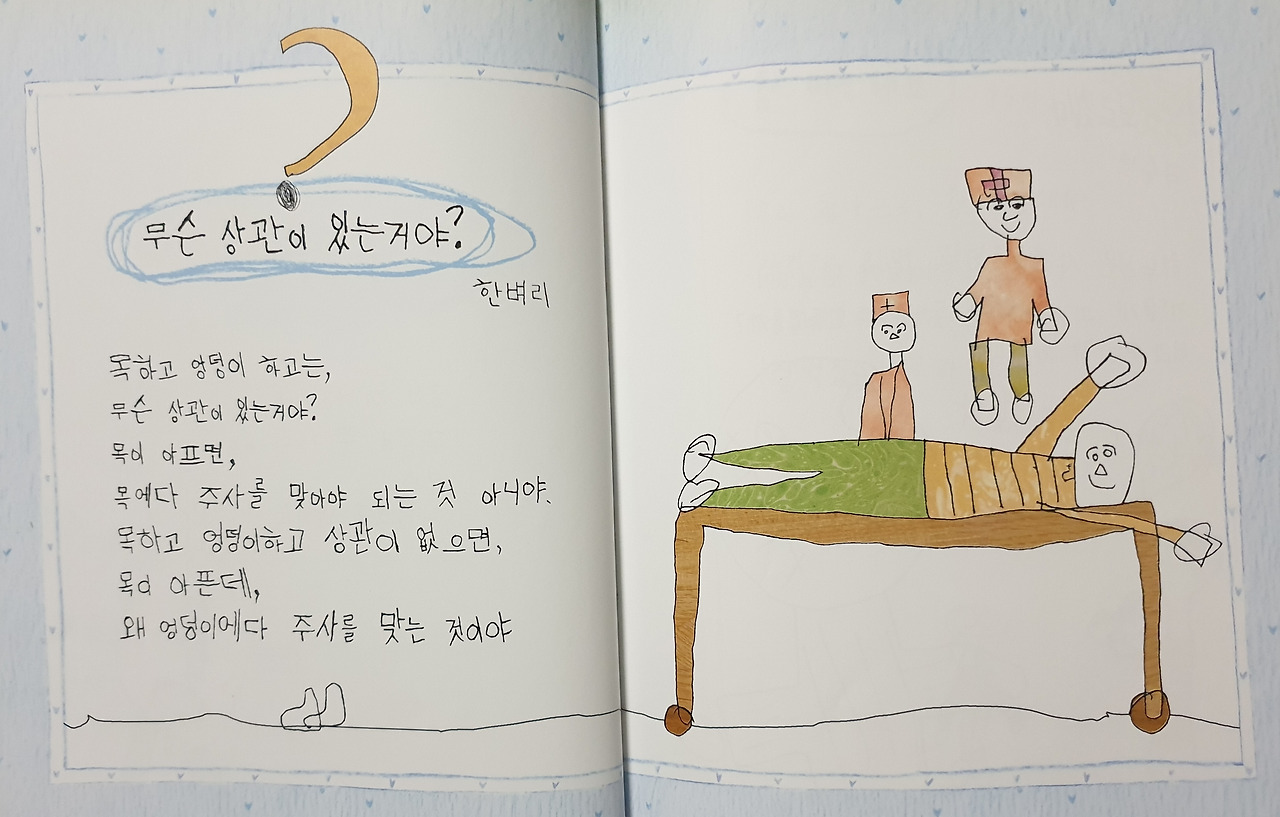 무슨 상관이 있는거야?
한벼리
목하고 엉덩이 하고는,
무슨 상관이 있는거야?
목이 아프면,
목에다 주사를 맞아야 되는 것 아니야.
목하고 엉덩이하고 상관이 없으면,
목이 아픈데,
왜 엉덩이에다 주사를 맞는 것이야